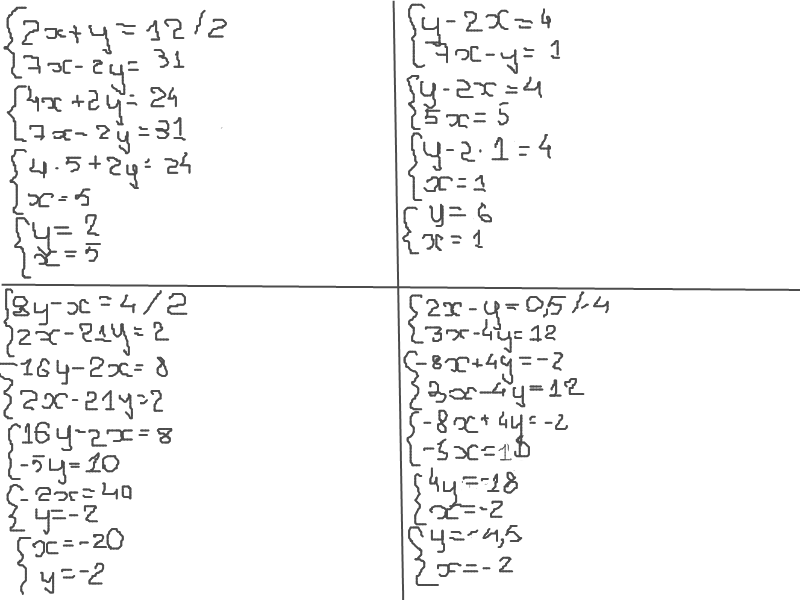 2x+y=12/2
7x-2y=31
4x+2y=24
7x-2y=31
4·5+2y=24
x=5
y=2
x=5
y-2x=4
7x-y=1
y-2x=4
5x=5
y-2·1=4
x=1
y=6
x=1
8y-x=4/2
2x-21y=2
16y-2x=8
2x-21y=2
16y-2x=8
-5y=10
-2x=40
y=-2
x=-20
y=-2
2x-y=0,5/·-4
3x-4y=12
-8x+4y=-2
3x-4y=12
-8x+4y=-2
-5x=10
4y=-18
x=-2
y=-4,5
x=-2